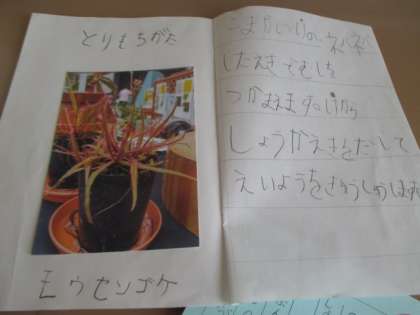 とりもちがた
モウセンゴケ
こまかいけの、ネバネバ
したえきでむしを
つかまえます。けから
しょうかえきをだして
えいようをきゅうしゅうします